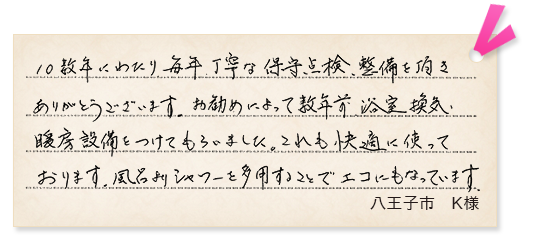 10数年にわたり毎年丁寧な保守点検、整備を頂き
ありがとうございます。お勧めによって数年前浴室換気・
暖房設備をつけてもらいました。これも快適に使って
おります。風呂よりシャワーを多用することでエコにもなっています。
八王子市　K様